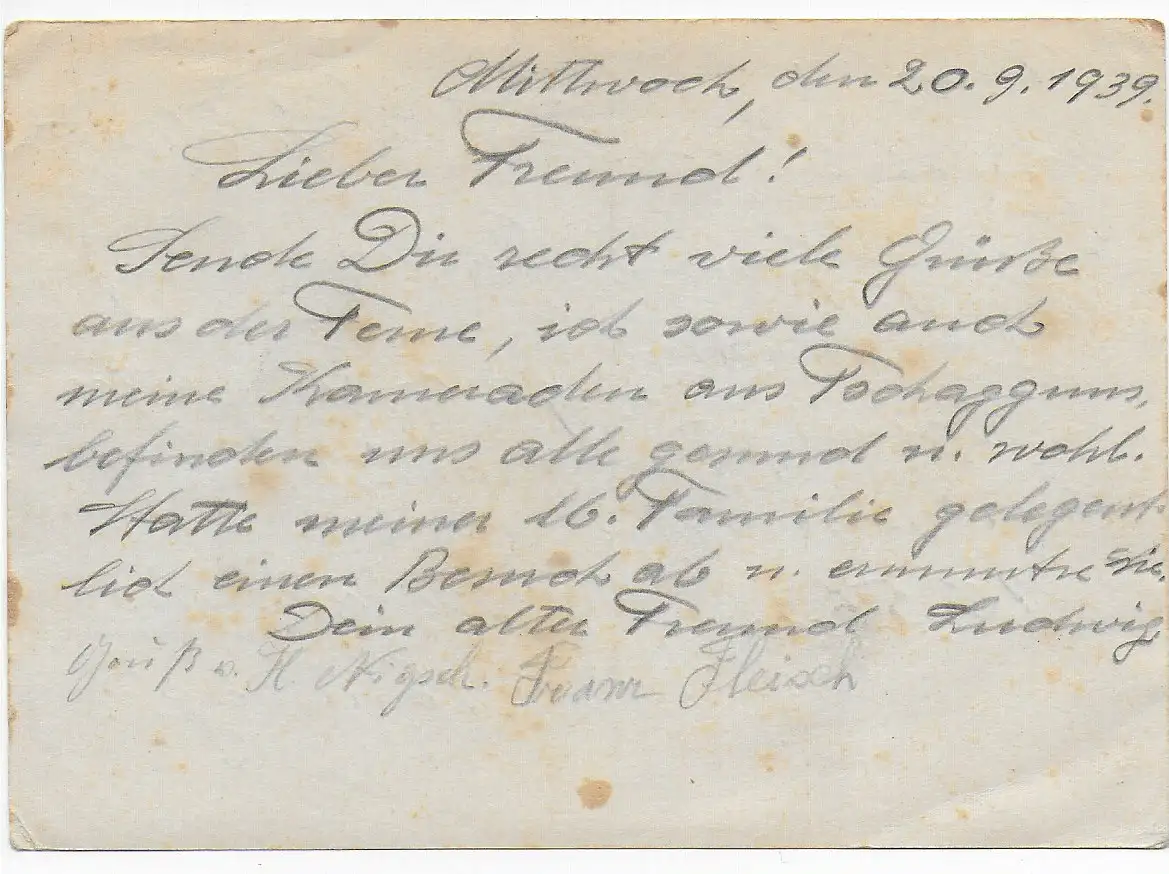 Mittwoch, den 20.9.1939.
Lieber Freund!
Sende Dir recht viele Grüße
aus der Ferne, ich sowie auch
meine Kameraden aus Tschagguns,
befinden uns alle gesund u. wohl.
Statte meiner lb. Familie gelegent-
lich einen Besuch ab u. ermuntre sie.
Dein alter Freund Ludwig
Gruß v. H. Nigsch. Franz Fleisch